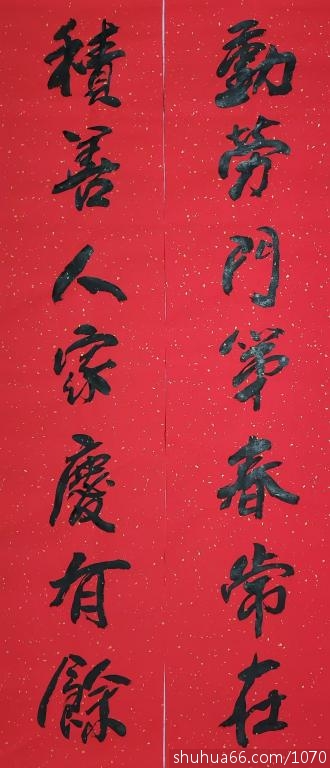 動劳門第春常在
積善人家慶有餘
shuhua66.com/1070